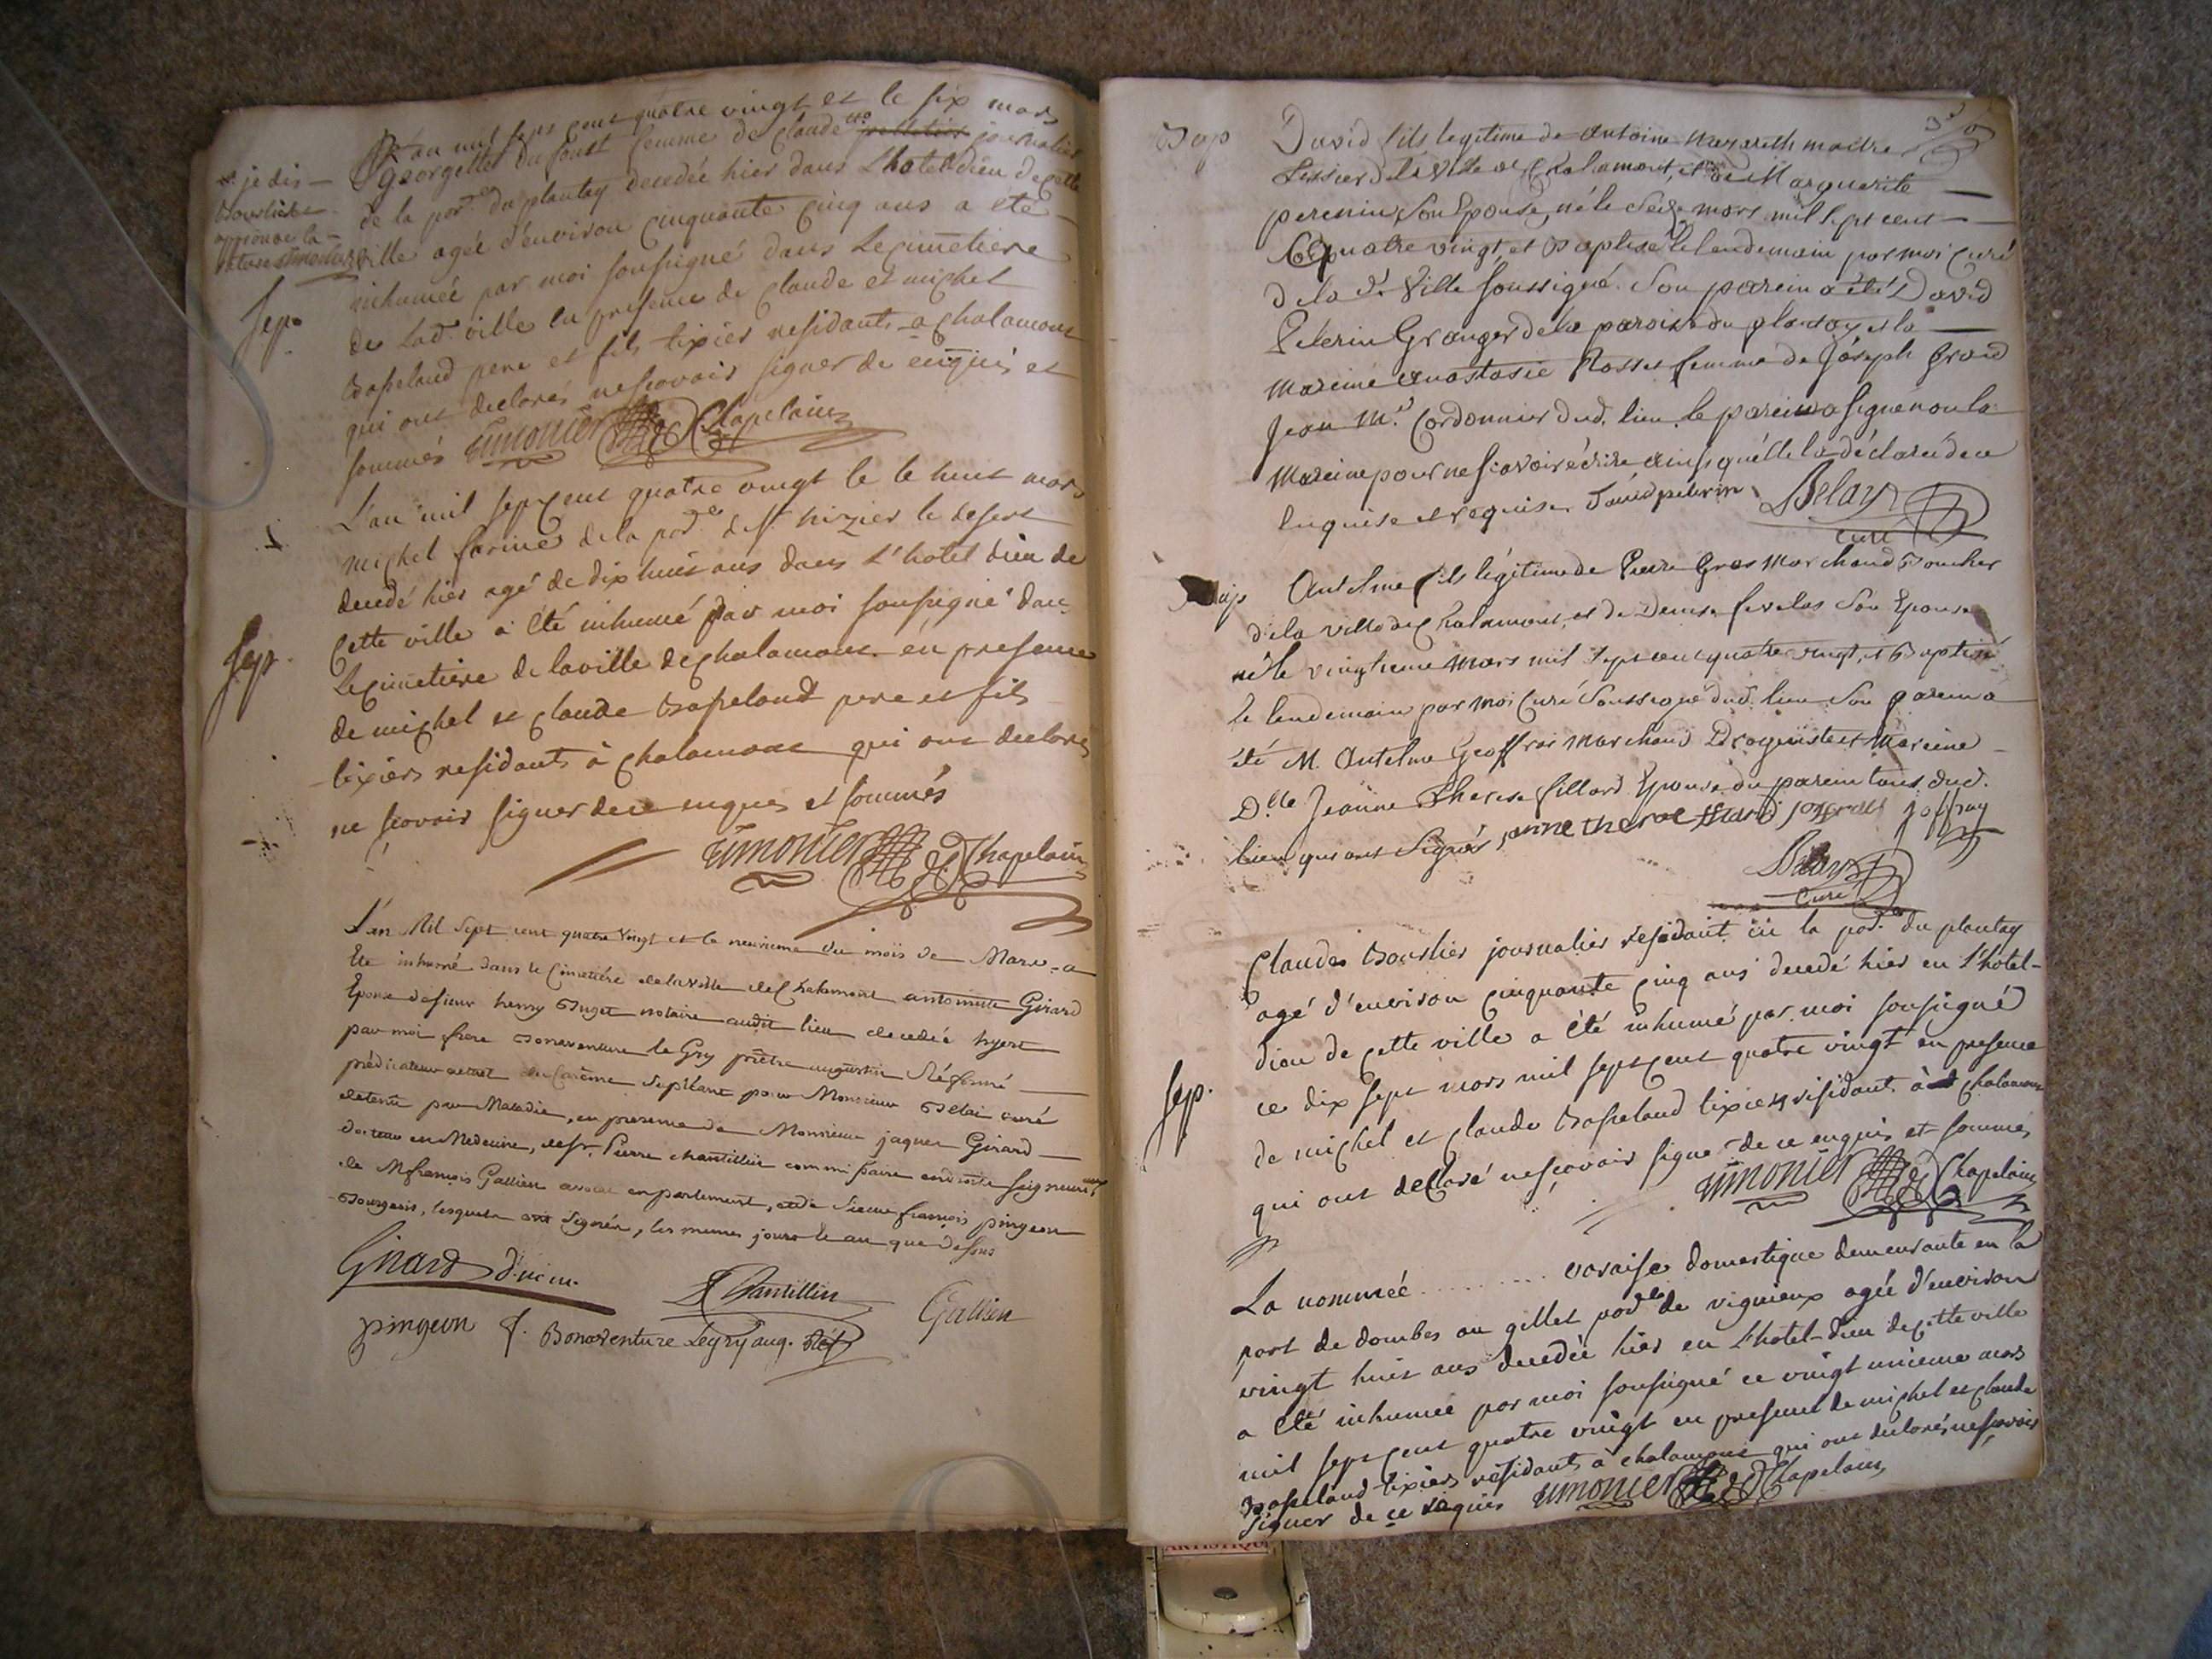 L'an mil sept cent quatre vingt et le six mars
georgette femme de claude journalier
de la par.e du plantay decedée hier dans L'hotel dieu de cette
ville agée d'environ cinquante cinq ans a été
inhumée par moi soussigné dans Le cimetiere
de Lad. ville en presence de claude et michel
pere et fils tixier residants a chalamont
qui ont declarés ne sçavoir signer de enquis et
sommés timonier Chapelain
je dis
approuve la
Sep.
L'an mil sept cent quatre vingt le le huit mars
michel farine de la par.e de St. nizier le desert
decedé hier agé de dix huit ans dans L'hotel dieu de
Cette ville a été inhumé par moi soussigné dans
Le cimetière de la ville de chalamont en presence
de michel et claude pere et fils
tixiers residants à chalamont qui ont declarés
ne sçavoir signer de ce enquis et sommés
timonier Chapelain
Sep.
L'an Mil Sept cent quatre vingt et le neuvieme du mois de Mars a
été inhumé dans le Cimetiére de la ville de Chalamont antoinette Girard
Epouse de sieur henry notaire audit lieu decedée hyert
par moi frere Bonaventure le Gry prêtre augustin Réformé
prédicateur du Carême Supléant pour Monsieur Belai curé
detenu par Maladie, en presence de Monsieur jaques Girard
docteur en Medecine, de Sr. Pierre chantillin commissaire en droits seigneuriaux
de M. françois Gallien avocat en parlement, et de Sieur françois pingeon
Bourgeois, lesquels ont Signés, les memes jours le an que dessus
Girard D. m.
Chantillin
Gallien
pingeon f. Bonaventure Légry aug. Réf.
Bap
David fils legitime de Antoine Nazareth maitre
Tessier de la Ville de Chalamont, et de Marguerite
perenin Son Epouse, né le Seize mars mil sept cent
quatre vingt, et Baptisé le lendemain par moi Curé
de la d. Ville soussigné. Son parein a été David
Pelerin Granger de la paroisse du plantay et la
mareine anastasie Rosset femme de Joseph
Jean M.e Cordonnier dud. lieu. le parein a signé non la
mareine pour ne sçavoir écrire ainsi qu'elle l'a déclaré de ce
enquise et requise. David pelerin Belay
curé
Bap
Antelme fils légitime de Pierre Gros Marchand Boucher
de la ville de Chalamont, et de Denise Son Epouse
né le mars mil sept cent quatre vingt, et Baptisé
le lendemain par moi Curé Soussigné dud. lieu Son parein a
été M. Antelme Geoffrai Marchand Droguiste et Mareine
D.lle Jeanne Therese fillard Epouse du parein tous dud.
lieu qui ont Signés, janne therese joffray
Belay
Curé
Sep.
Claude journalier residant en la par.e du plantay
agé d'environ cinquante cinq ans decedé hier en L'hôtel-
dieu de cette ville a été inhumé par moi soussigné
ce dix sept mars mil sept cent quatre vingt en presence
de michel et claude tixiers residants à chalamont
qui ont declaré ne sçavoir signer de ce enquis et sommés
timonier Chapelain
La nommée ........ domestique demeurante en la
part de dombes au gillet par.e de agée d'environ
vingt huit ans decedée hier en L'hotel-dieu de cette ville
a été inhumée par moi soussigné ce vingt unieme mars
mil sept cent quatre vingt en presence de michel et claude
tixiers résidants à chalamont qui ont declarés ne sçavoir
signer de ce requis timonier Chapelain
ARTISTIQUE